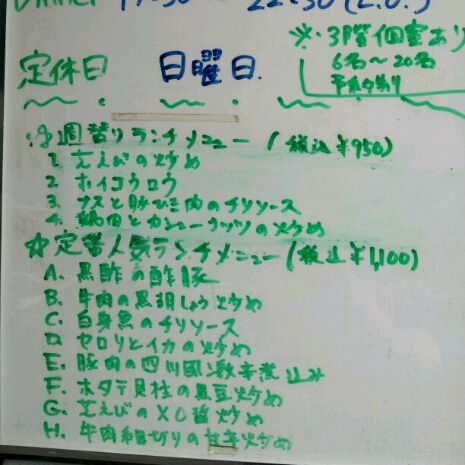 Dinner 17:30 ~ 22:30 (L.O.)
※・3階個室あり
6名～20名
定休日 日曜日.
☆週替りランチメニュー (税込¥950)
1. 芝えびの炒め
2. ホイコウロウ
3. ナスと豚ひき肉のチリソース
4. 鶏肉とカシューナッツの炒め
☆定番人気ランチメニュー (税込¥1,100)
A. 黒酢の酢豚
B. 牛肉の黒胡しょう炒め
C. 白身魚のチリソース
D. セロリとイカの炒め
E. 豚肉の四川風激辛煮込み
F. ホタテ貝柱の黒豆炒め
G. 芝えびのXO醤炒め
H. 牛肉細切りの甘辛炒め